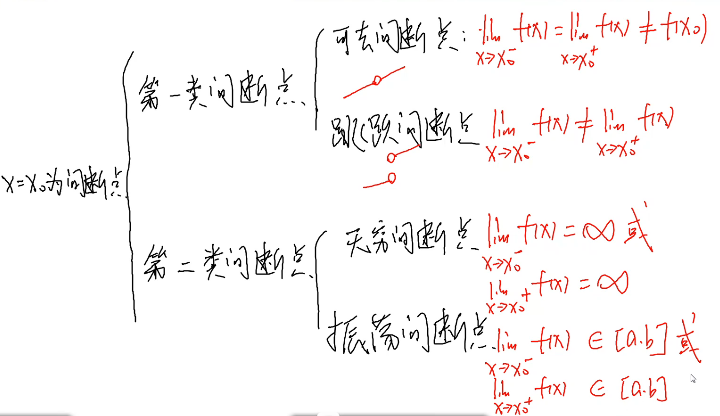 x=x₀为间断点
第一类间断点
可去间断点: lim x→x₀⁻ f(x) = lim x→x₀⁺ f(x) ≠ f(x₀)
跳跃间断点 lim x→x₀⁻ f(x) ≠ lim x→x₀⁺ f(x)
第二类间断点
无穷间断点 lim x→x₀⁻ f(x) = ∞ 或
lim x→x₀⁺ f(x) = ∞
振荡间断点 lim x→x₀⁻ f(x) ∈ [a.b] 或
lim x→x₀⁺ f(x) ∈ [a.b]